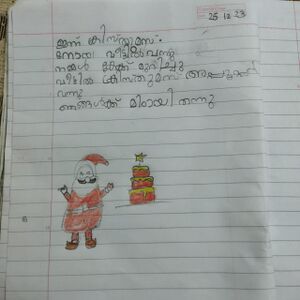 25.12.23
ഇന്ന് ക്രിസ്തുമസ്.
നോയ വീട്ടിൽ വന്നു
നമ്മൾ കേക്ക് മുറിച്ചു
വീട്ടിൽ ക്രിസ്തുമസ് അപ്പൂപ്പൻ
വന്നു
ഞങ്ങൾക്ക് മിഠായി തന്നു